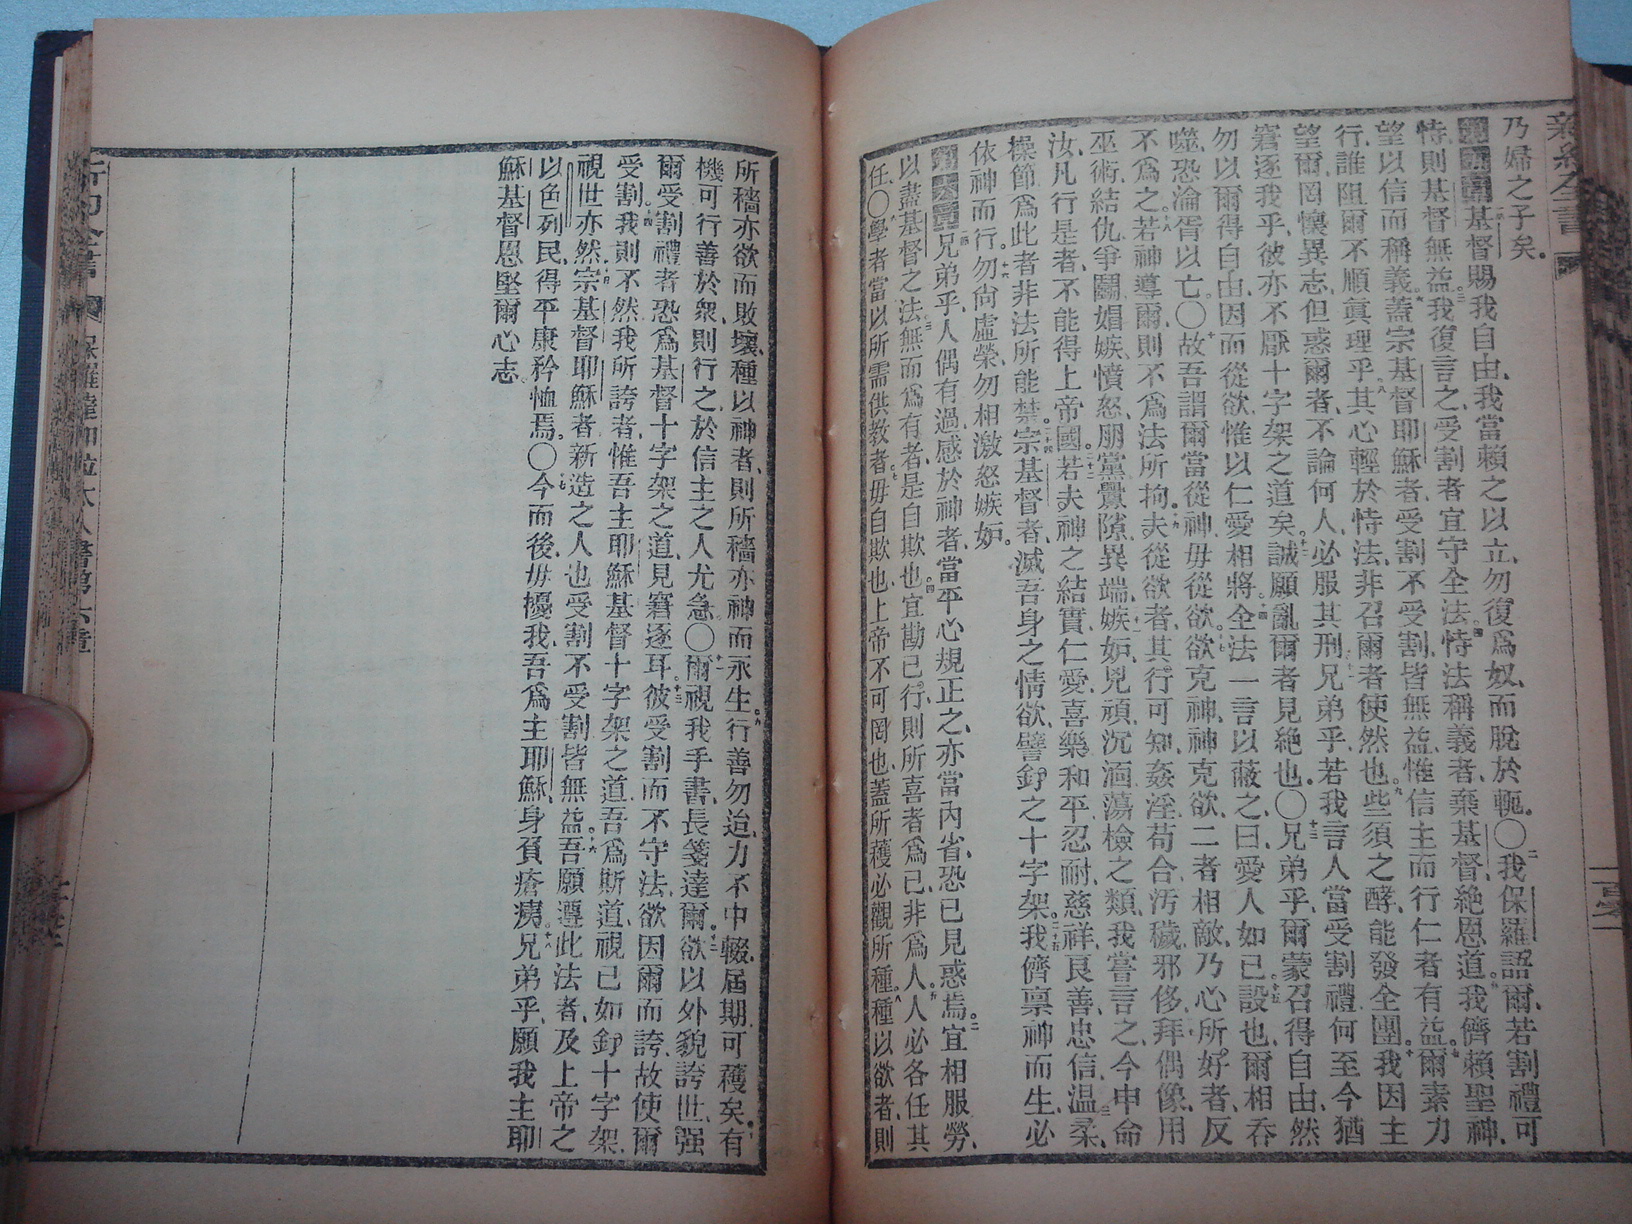 新約全書
乃婦之子矣。
基督賜我自由、我當賴之以立、勿復爲奴、而脫於軛。〇二我保羅語爾、若割禮可
恃、則基督無益。三我復言之、受割者宜守全法。四恃法稱義者、棄基督、絕恩道。五我儕賴聖神、
望以信而稱義。六蓋宗基督耶穌者、受割不受割、皆無益、惟信主而行仁者有益。七爾素力
行、誰阻爾不順眞理乎。八其心輕於恃法、非召爾者使然也。九些須之酵、能發全團。十我因主
望爾、罔懷異志、但惑爾者、不論何人、必服其刑。十一兄弟乎、若我言人當受割禮、何至今猶
窘逐我乎、彼亦不厭十字架之道矣。十二誠願亂爾者見絕也。〇十三兄弟乎、爾蒙召得自由、然
勿以爾得自由、因而從欲、惟以仁愛相將。十四全法一言以蔽之曰、愛人如己。十五設也爾相吞
噬、恐淪胥以亡。〇十六故吾謂爾當從神、毋從欲。十七欲克神、神克欲、二者相敵、乃心所好者、反
不爲之。十八若神導爾、則不爲法所拘。十九夫從欲者、其行可知、姦淫、苟合、汚穢、邪侈、拜偶像、用
巫術、結仇、爭鬬、媢嫉、憤怒、朋黨、釁隙、異端、嫉妬、兇頑、沉湎、蕩檢之類、我嘗言之、今申命
汝、凡行是者、不能得上帝國。二十二若夫神之結實、仁愛、喜樂、和平、忍耐、慈祥、良善、忠信、温柔、
操節、爲此者、非法所能禁。二十四宗基督者、滅吾身之情欲、譬釘之十字架。二十五我儕稟神而生、必
依神而行。二十六勿尙虛榮、勿相激怒嫉妬。
兄弟乎、人偶有過、感於神者、當平心規正之、亦當內省、恐己見惑焉。二宜相服勞、
以盡基督之法。三無而爲有者、是自欺也。四宜勘己行、則所喜者爲己、非爲人。五人必各任其
任。〇六學者當以所需供教者。七毋自欺也、上帝不可罔也、蓋所穫必觀所種。八種以欲者、則
所穡亦欲而敗壞、種以神者、則所穡亦神而永生。九行善勿迨、力不中輟、屆期可穫矣。十有
機可行善於衆、則行之、於信主之人尤急。〇十一爾視我手書、長箋達爾。十二欲以外貌誇世、强
爾受割禮者、恐爲基督十字架之道、見窘逐耳。十三彼受割而不守法、欲因爾而誇、故使爾
受割。十四我則不然、我所誇者、惟吾主耶穌基督十字架之道、吾爲斯道、視已如釘十字架、
視世亦然。十五宗基督耶穌者、新造之人也、受割不受割、皆無益。十六吾願遵此法者、及上帝之
以色列民、得平康矜恤焉。〇十七今而後、毋擾我、吾爲主耶穌、身負瘡痍。十八兄弟乎、願我主耶
穌基督恩堅爾心志
保羅達加拉太人書第六章